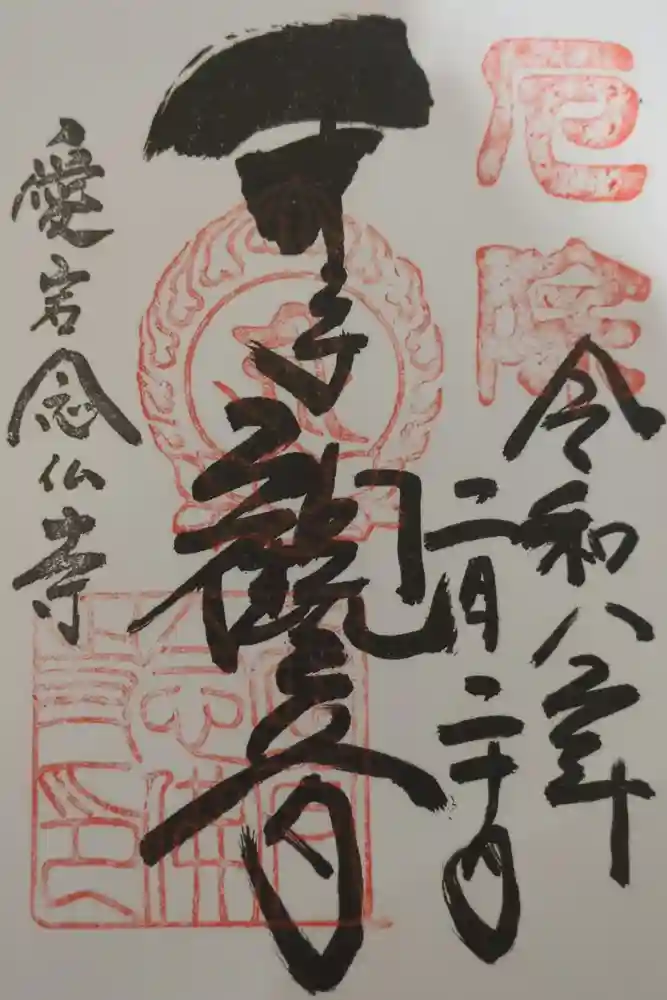 厄除
令和八年
二月二十日
千手観音
愛宕念仏寺